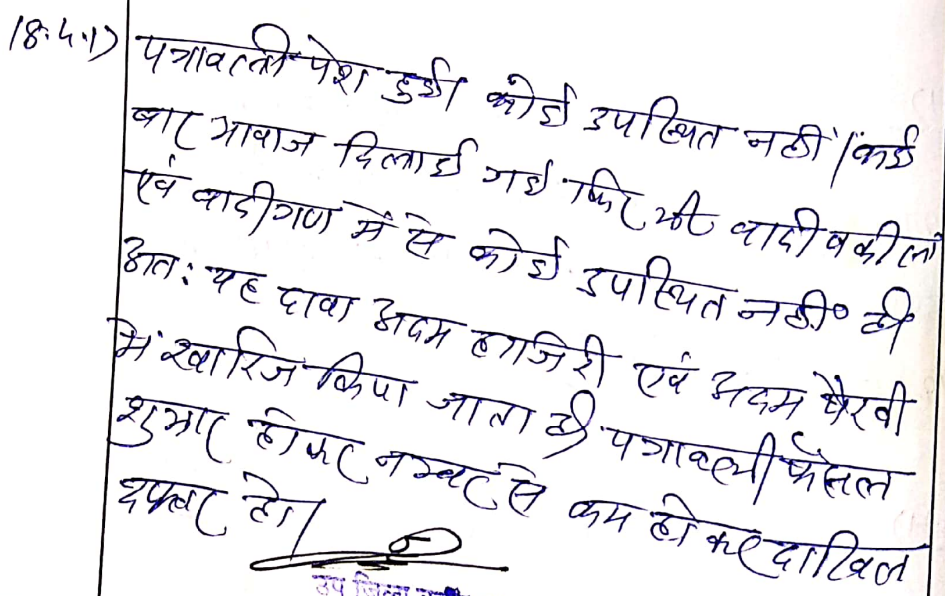 18.4.17 पत्रावली पेश हुई। कोई उपस्थित नहीं। कई
बार आवाज दिलाई गई फिर भी वादी वकील
एवं वादीगण में से कोई उपस्थित नहीं है
अत: यह दावा अदम हाजिरी एवं अदम पैरवी
में खारिज किया जाता है। पत्रावली फैसल
शुमार होकर नम्बर से कम होकर दाखिल
दफ्तर हो।
उप जिला